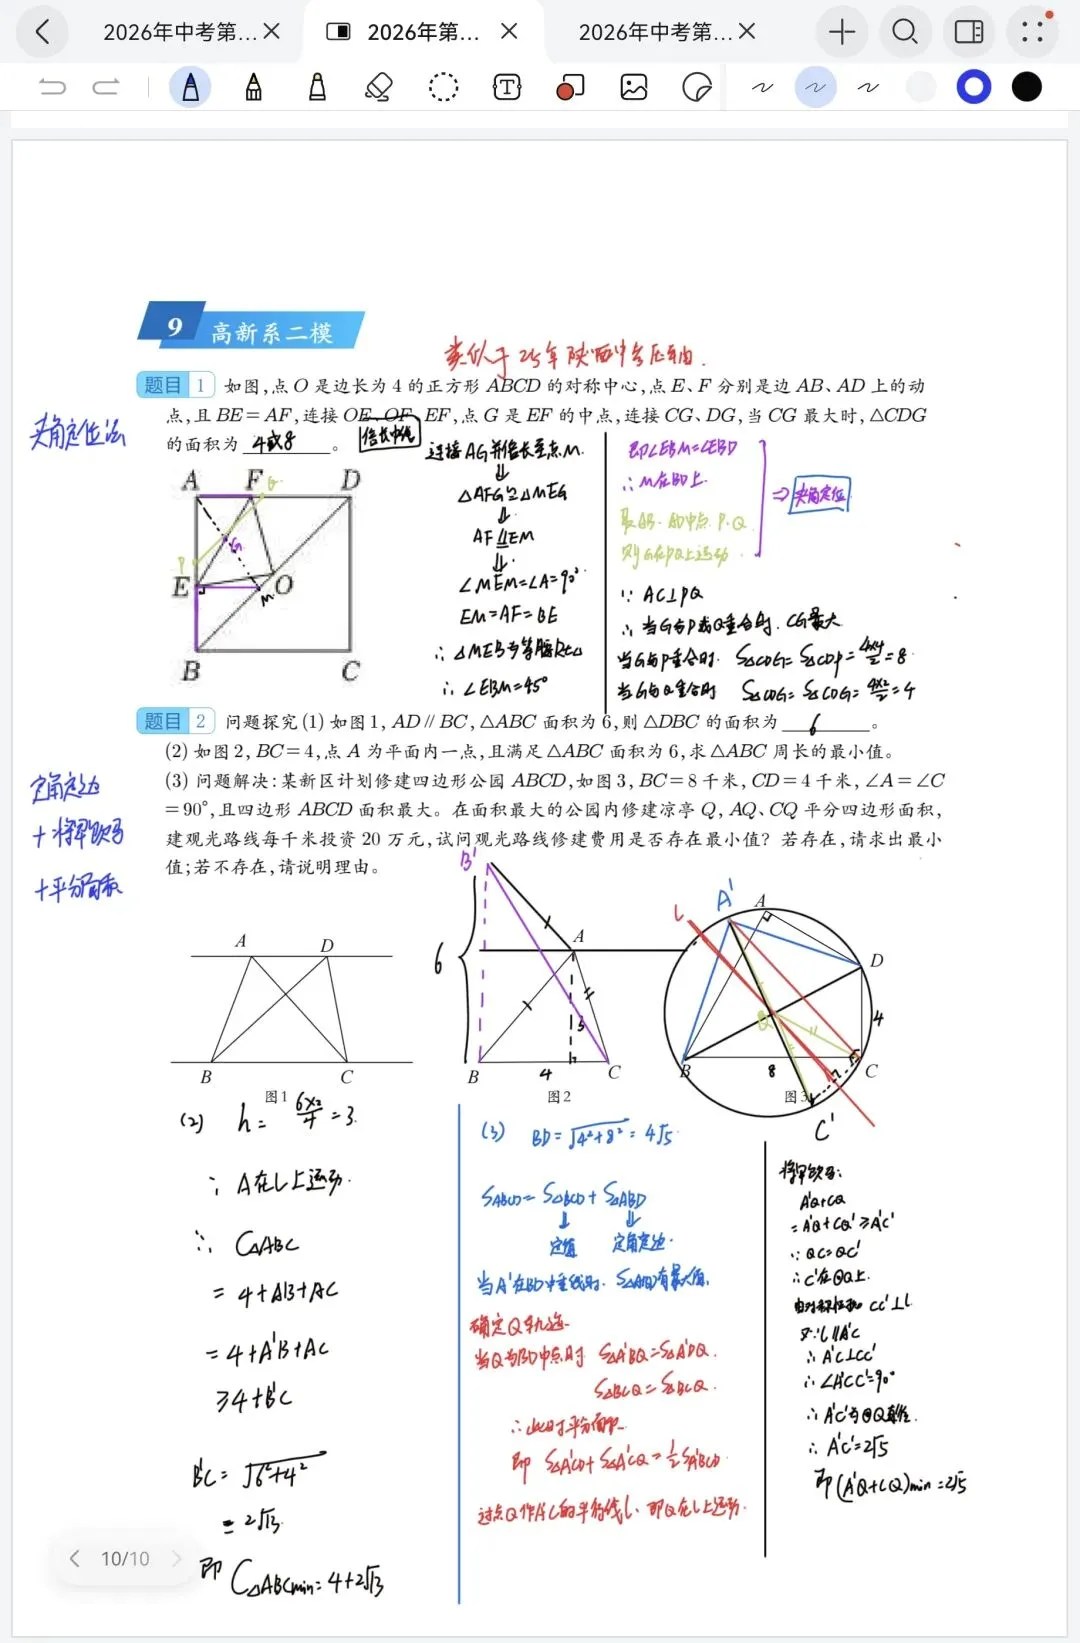 2026年中考第...
2026年第...
2026年中考第...
9 高新系二模
类似于25年陕西中考压轴.
题目 1 如图,点 O 是边长为 4 的正方形 ABCD 的对称中心,点 E、F 分别是边 AB、AD 上的动
点,且 BE=AF,连接 OE、OF、EF,点 G 是 EF 的中点,连接 CG、DG,当 CG 最大时,△CDG
的面积为 4或8 。
夹角定位法
倍长中线
连接AG并倍长至点M.
⇓
△AFG≌△MEG
⇓
AF∥EM
⇓
∠MEM=∠A=90°
EM=AF=BE
∴△MEB为等腰Rt△
∴∠EBM=45°
即∠EBM=∠EBD
∴M在BD上.
取AB、AD中点P、Q
则G在PQ上运动.
⇒ 夹角定位
∵ AC⊥PQ
∴当G与P或Q重合时.CG最大
当G与P重合时. S△CDG=S△CDP=4×4/2=8
当G与Q重合时 S△CDG=S△CDG=4×2/2=4
A F G D
P G
E M O
B C
题目 2 问题探究(1)如图1,AD∥BC,△ABC 面积为6,则△DBC 的面积为 6 。
(2)如图2,BC=4,点 A 为平面内一点,且满足△ABC 面积为6,求△ABC 周长的最小值。
(3)问题解决:某新区计划修建四边形公园 ABCD,如图3,BC=8千米,CD=4千米,∠A=∠C
=90°,且四边形 ABCD 面积最大。在面积最大的公园内修建凉亭 Q,AQ、CQ 平分四边形面积,
建观光路线每千米投资20万元,试问观光路线修建费用是否存在最小值?若存在,请求出最小
值;若不存在,请说明理由。
定角定边
+将军饮马
+平分面积
A D
B C
图1
B'
6
A
3
B 4 C
图2
l A' A
D
Q 4
B 8 C
图3
C'
(2) h=6×2/4=3.
∴ A在l上运动.
∴ C△ABC
= 4+AB+AC
= 4+A'B+AC
≥4+B'C
B'C=√6²+4²
= 2√13
即 C△ABCmin=4+2√13
(3) BD=√4²+8²=4√5
SABCD=S△BCD+S△ABD
⇓ ⇓
定值 定角定边.
当A'在BD中垂线时. S△ABD有最大值.
确定Q轨迹
当Q为BD中点时 S△A'BQ=S△A'DQ.
S△BCQ=S△BCQ.
∴此时平分面积
即 S△A'CD+S△A'CQ=1/2SA'BCD
过点Q作A'C的平行线l、即Q在l上运动.
将军饮马:
A'Q+CQ
=A'Q+CQ'≥A'C'
∵QC=QC'
∴C'在⊙Q上.
由对称性知 CC'⊥l.
又∵l∥A'C
∴A'C⊥CC'
∴∠A'CC'=90°
∴A'C'为⊙Q直径.
∴A'C'=2√5
即(A'Q+CQ)min=2√5
10/10